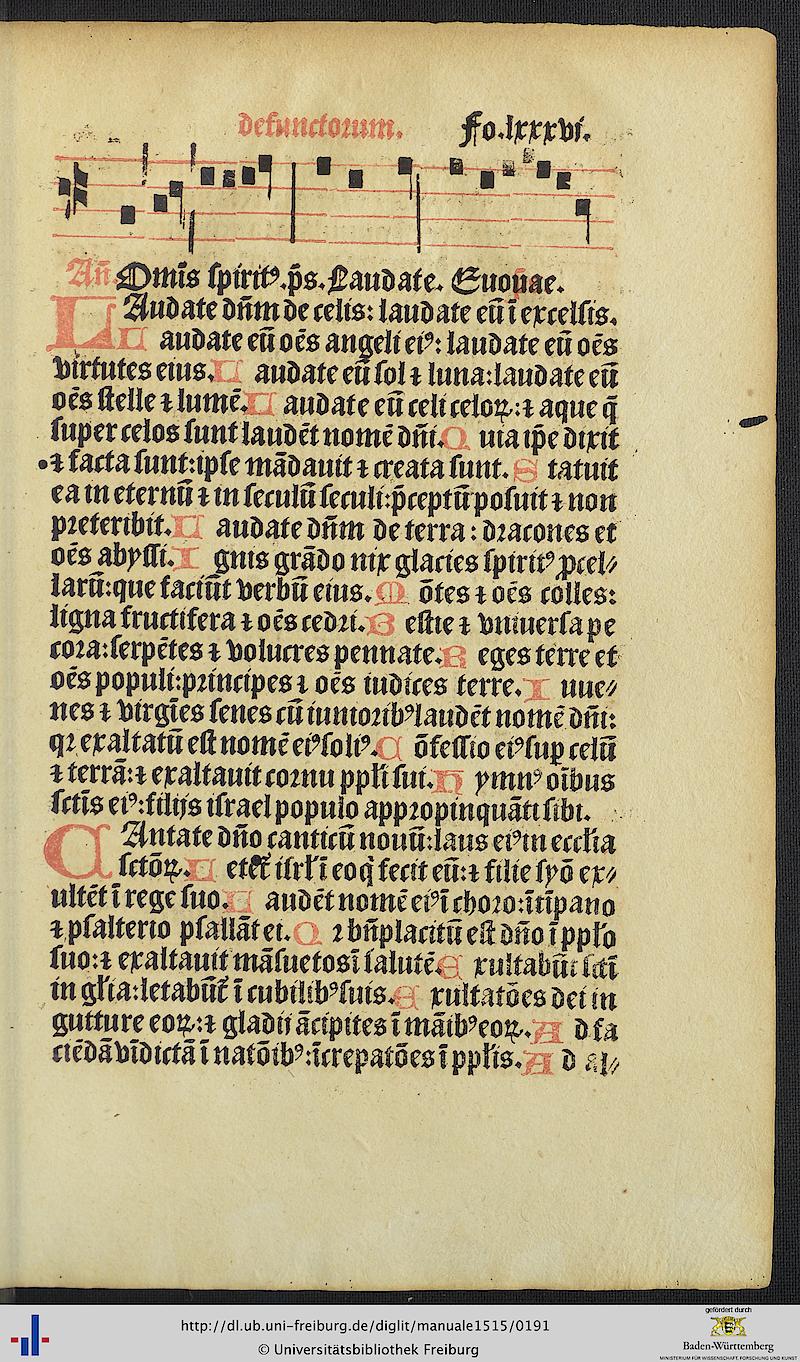 defunctorum. Fo.lxxxvi.
Añ. Om̄is spiritꝰ.p̄s.Laudate. Euouae.
LAudate dn̄m de celis: laudate eū ī excelsis.
L audate eū oēs angeli eiꝰ: laudate eū oēs
virtutes eius. L audate eū sol ⁊ luna:laudate eū
oēs stelle ⁊ lumē. L audate eū celi celoꝝ:⁊ aque q̄
super celos sunt laudēt nomē dn̄i. Q uia ip̄e dixit
⁊ facta sunt:ipse mādauit ⁊ creata sunt. S tatuit
ea in eternū ⁊ in seculū seculi:p̄ceptū posuit ⁊ non
preteribit. L audate dn̄m de terra: dracones et
oēs abyssi. I gnis grādo nix glacies spiritꝰ ꝓcel⸗
larū:que faciūt verbū eius. M ōtes ⁊ oēs colles:
ligna fructifera ⁊ oēs cedri. B estie ⁊ vniuersa pe
cora:serpētes ⁊ volucres pennate. R eges terre et
oēs populi:principes ⁊ oēs iudices terre. I uue⸗
nes ⁊ virgīes senes cū iunioribꝰ laudēt nomē dn̄i:
qꝛ exaltatū est nomē eiꝰ soliꝰ. C ōfessio eiꝰ suꝑ celū
⁊ terrā:⁊ exaltauit cornu ppl̄i sui. H ymnꝰ oībus
sctīs eiꝰ:filijs israel populo appropinquāti sibi.
CAntate dn̄o canticū nouū:laus eiꝰ in eccl̄ia
sctōꝝ. L etet̄ isrl̄ ī eo q̇ fecit eū:⁊ filie syō ex⸗
ultēt ī rege suo. L audēt nomē eiꝰ ī choro:ī tīpano
⁊ psalterio psallāt ei. Q ꝛ bn̄placitū est dn̄o ī ppl̄o
suo:⁊ exaltauit māsuetos ī salutē. E xultabūt sctī
in gl̄ia:letabūt̄ ī cubilibꝰ suis. E xultatōes dei in
gutture eoꝝ:⁊ gladij ācipites ī māibꝰ eoꝝ. A d fa
ciēdā vīdictā ī natōibꝰ:īcrepatōes ī ppl̄is. A d al⸗
http://dl.ub.uni-freiburg.de/diglit/manuale1515/0191
© Universitätsbibliothek Freiburg
gefördert durch
Baden-Württemberg
MINISTERIUM FÜR WISSENSCHAFT, FORSCHUNG UND KUNST